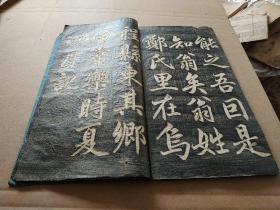 能之吾曰是
知翁矣翁姓
鄭氏里在烏
程縣東其鄉
樂時夏
日記